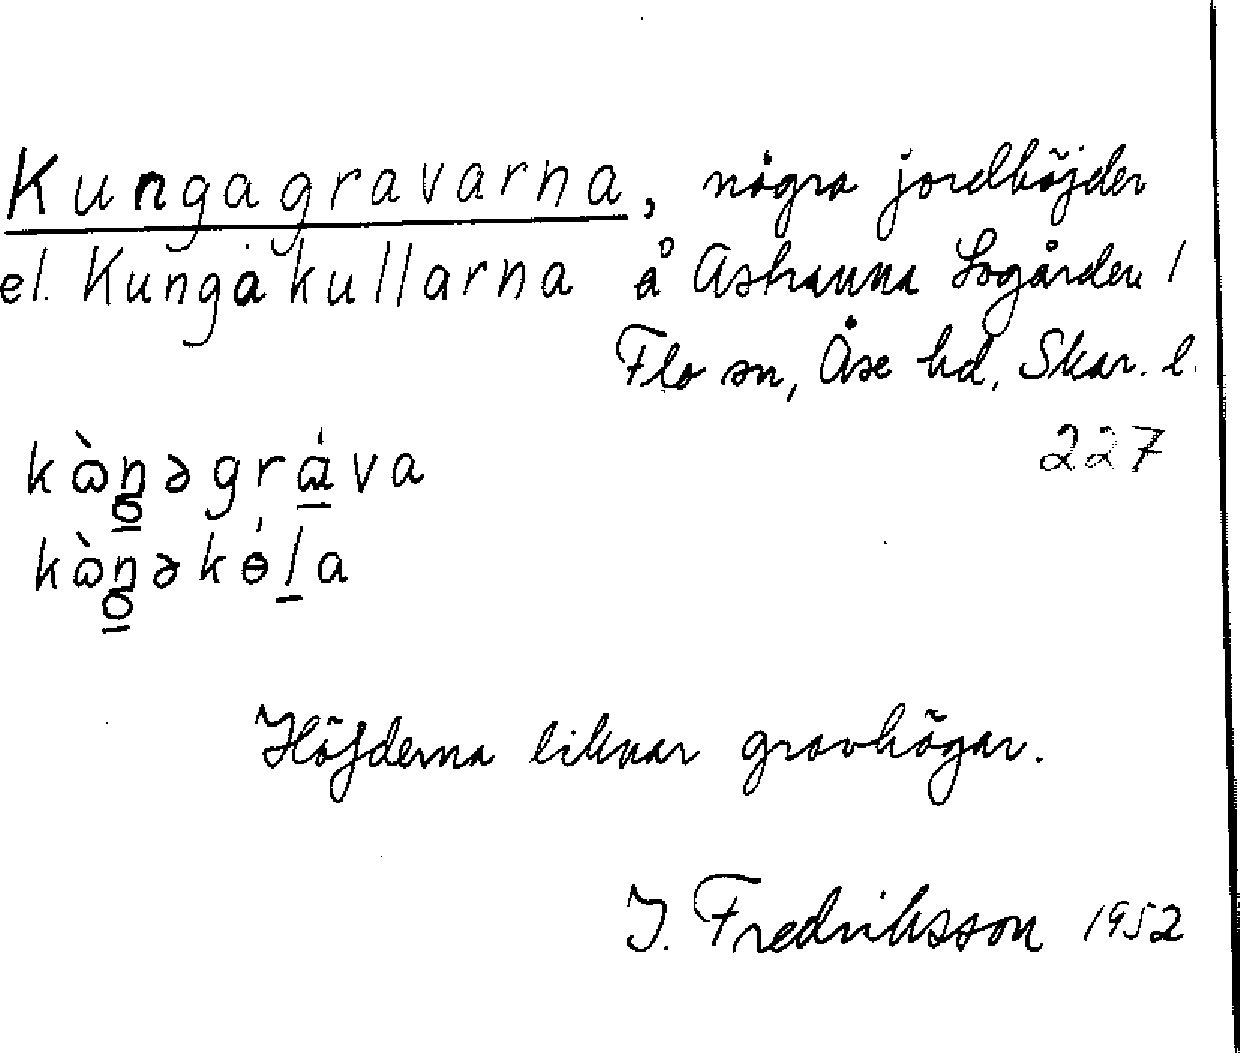 Kungagravarna, några jordhöjder
el. Kungakullarna å Askanna Logården /
Flo sn, Åse hd, Skar. l.
227
kɷ̀ŋəgrɑ́va
kɷ̀ŋəkɵ́la
Höjderna liknar gravhögar.
J. Fredriksson 1952